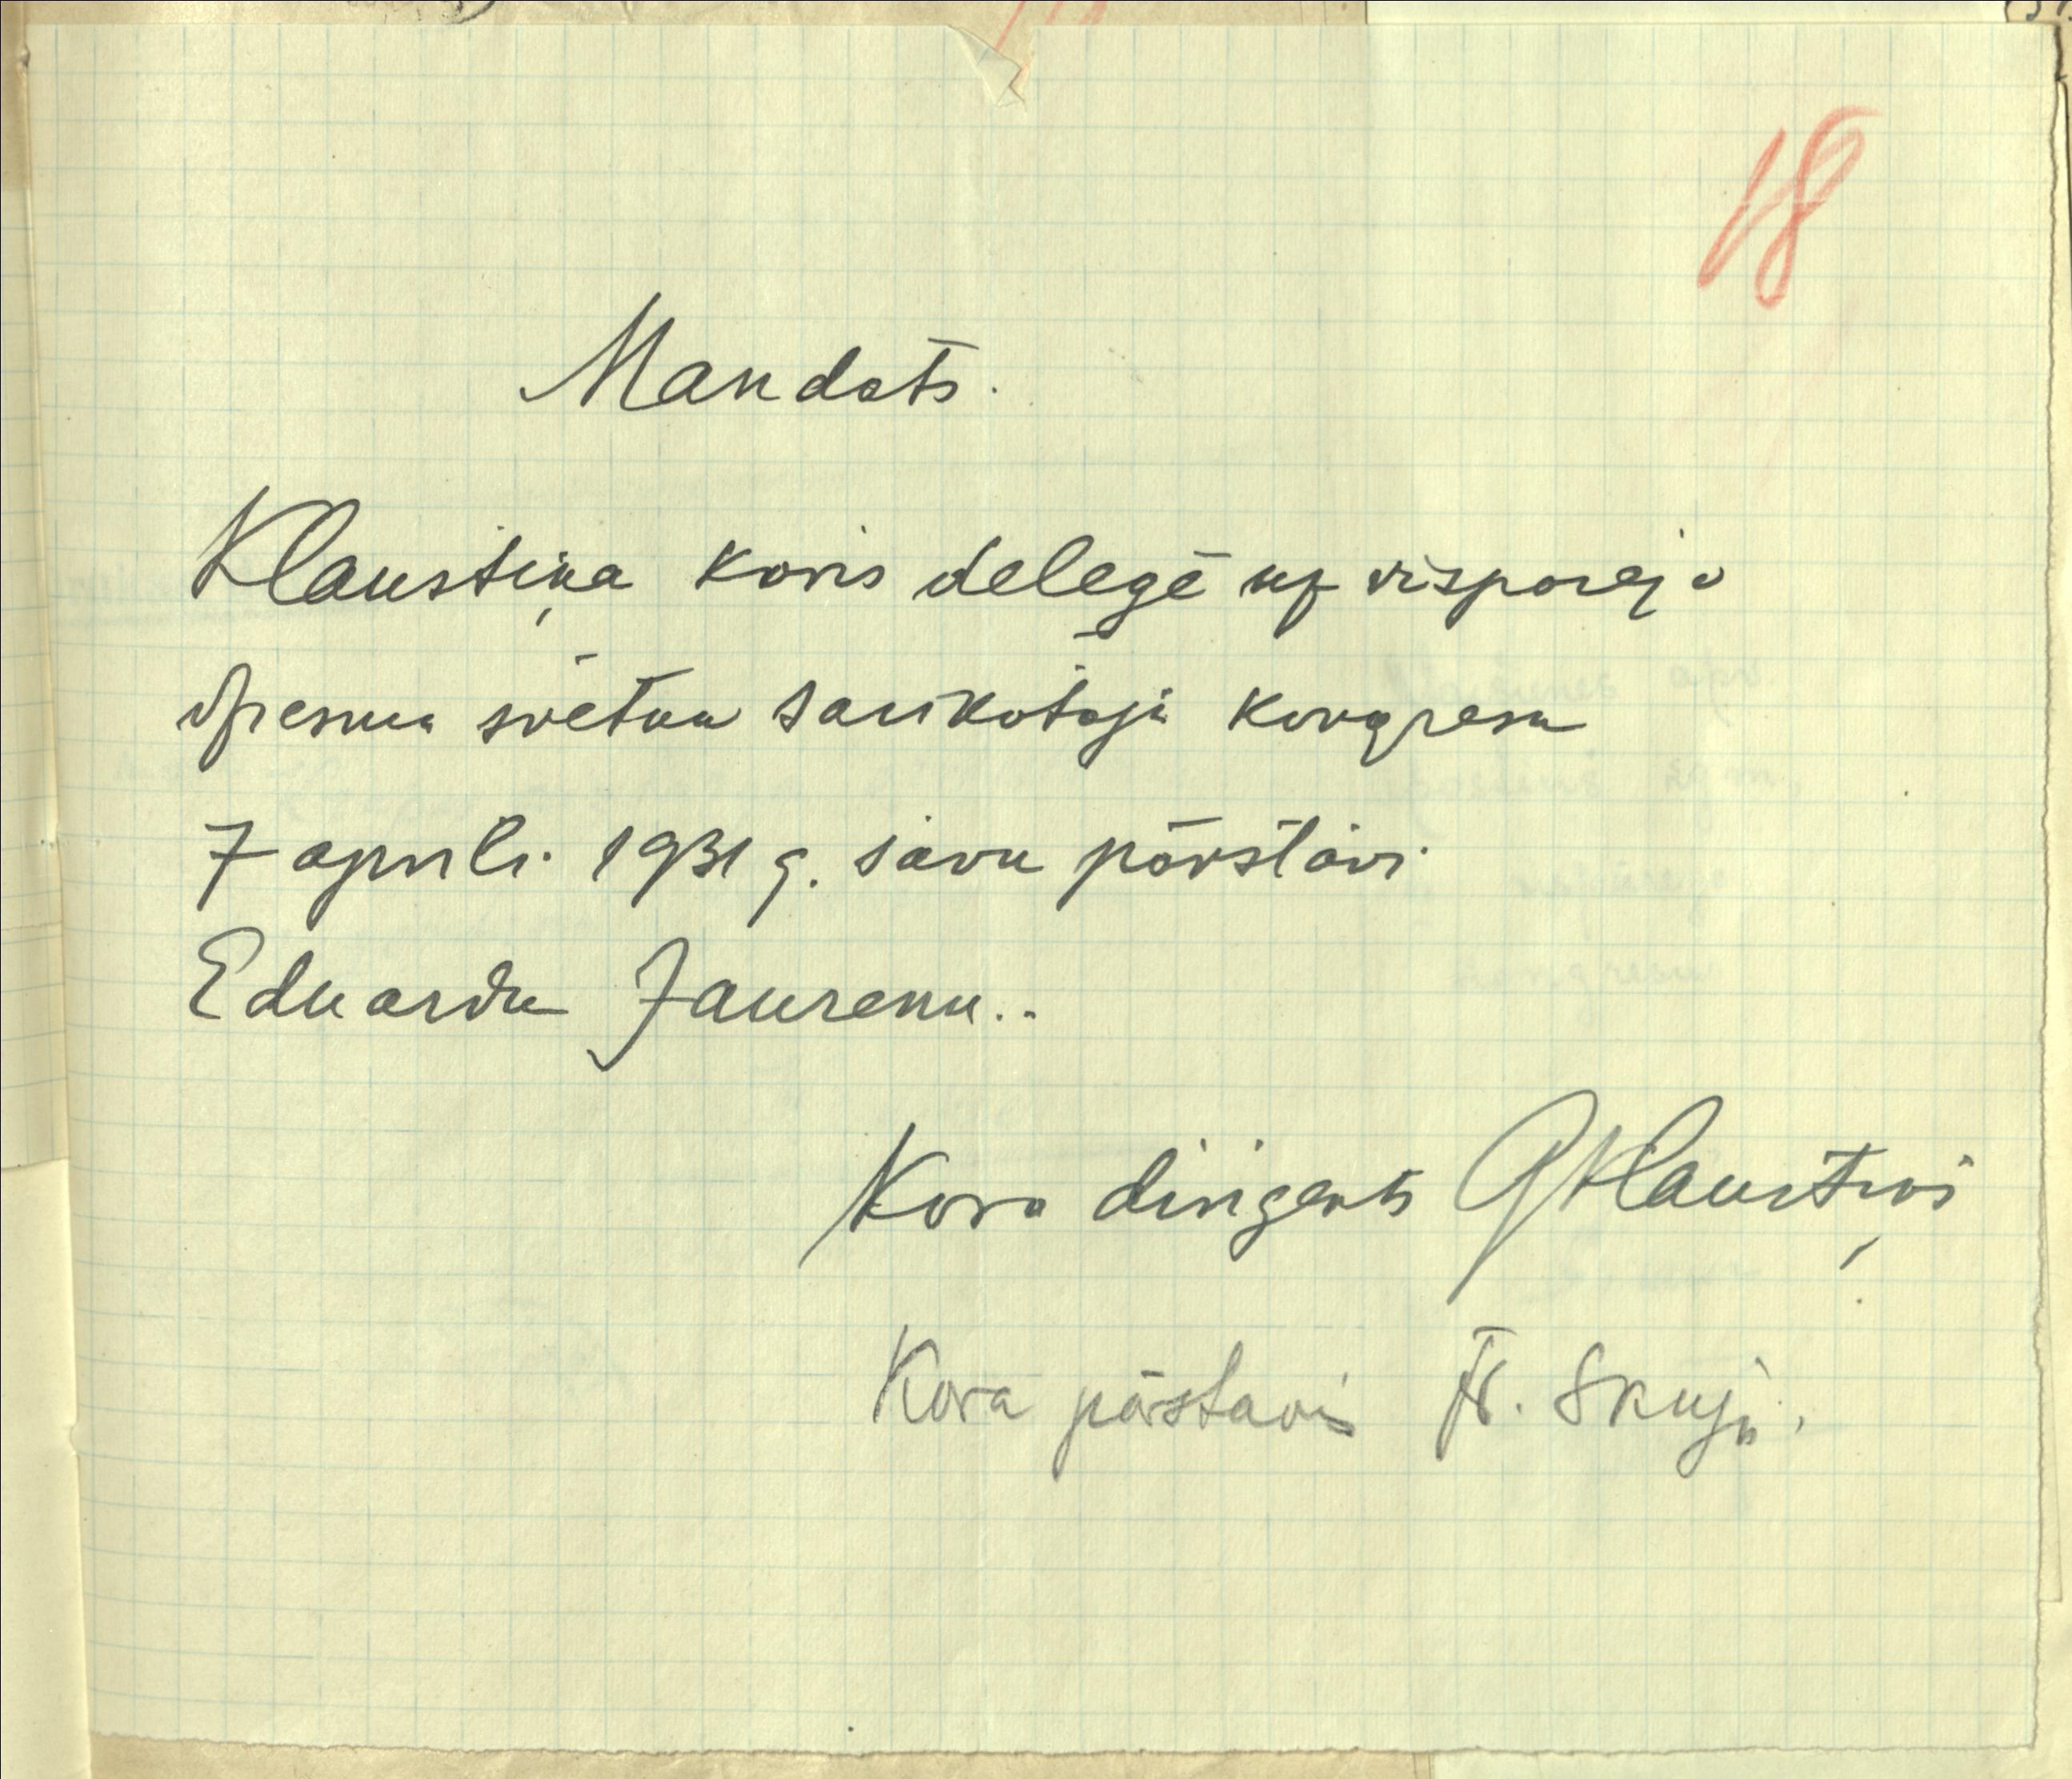 18
Mandats.
Klaustiņa koris delegē uz vispārējo
dziesmu svētku sarīkotāju kongresu
7 aprīli. 1931 g. savu pārstāvi
Eduardu Jaurenu..
Kora dirigents Klaustiņš
Kora pārstāvis Fr. Skuja.